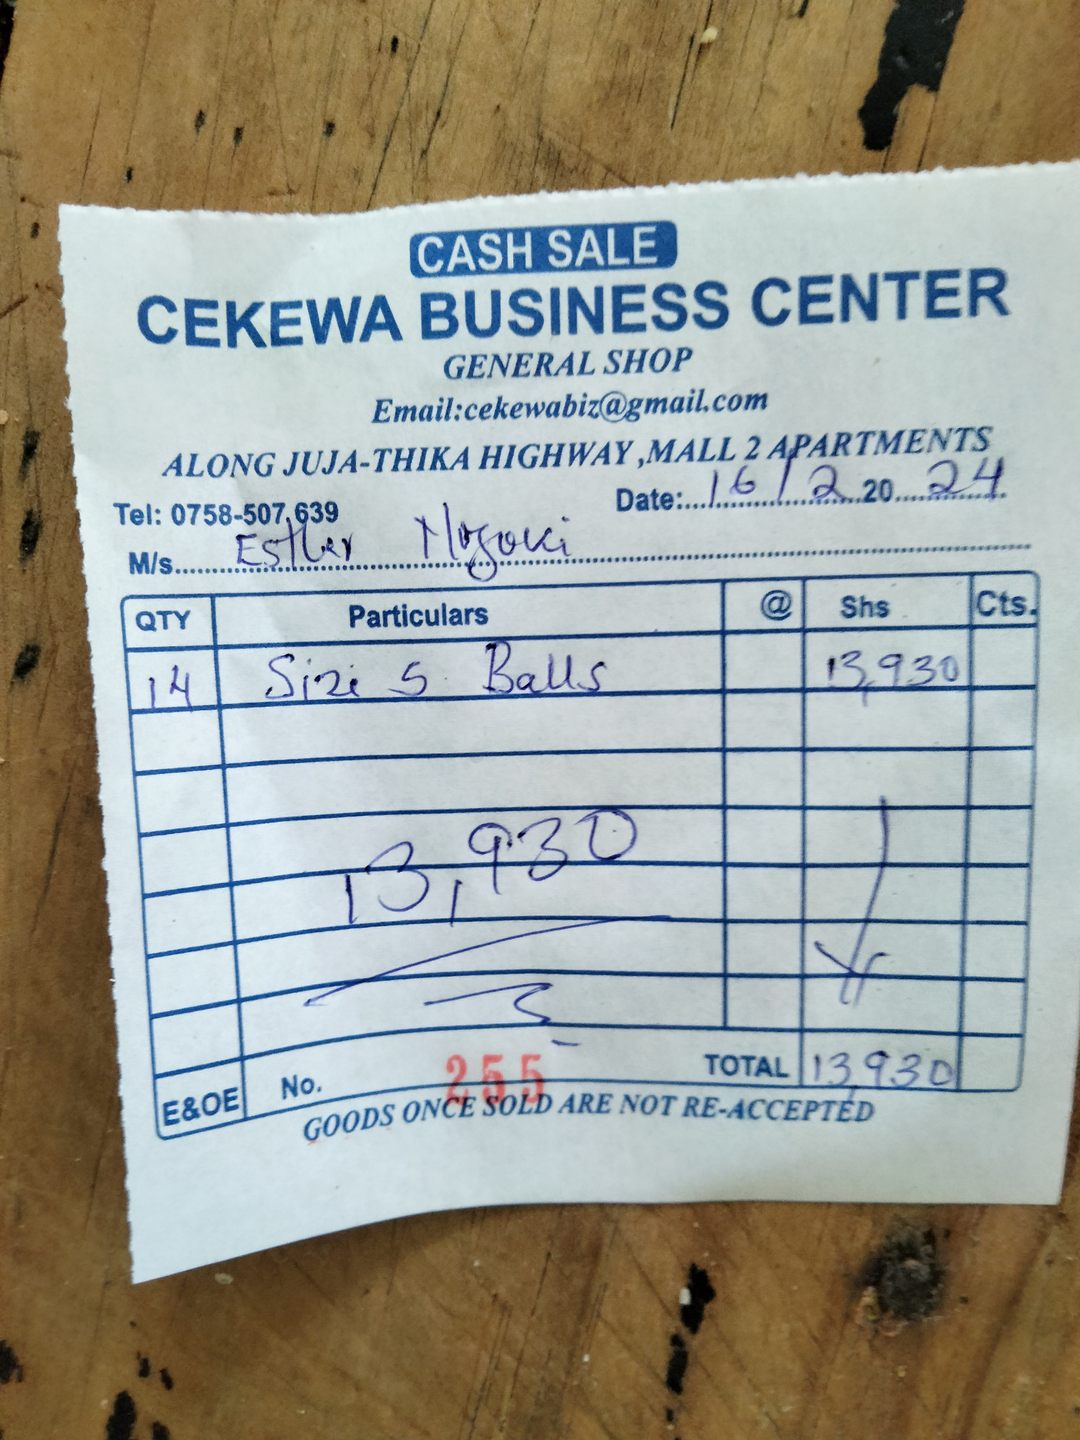 CASH SALE
CEKEWA BUSINESS CENTER
GENERAL SHOP
Email:cekewabiz@gmail.com
ALONG JUJA-THIKA HIGHWAY ,MALL 2 APARTMENTS
Tel: 0758-507,639 Date:....16/2....20....24
M/s....Esther
QTY Particulars @ Shs Cts.
14 Size 5 Balls 13,930
13,930
E&OE No. 255 TOTAL 13,930
GOODS ONCE SOLD ARE NOT RE-ACCEPTED